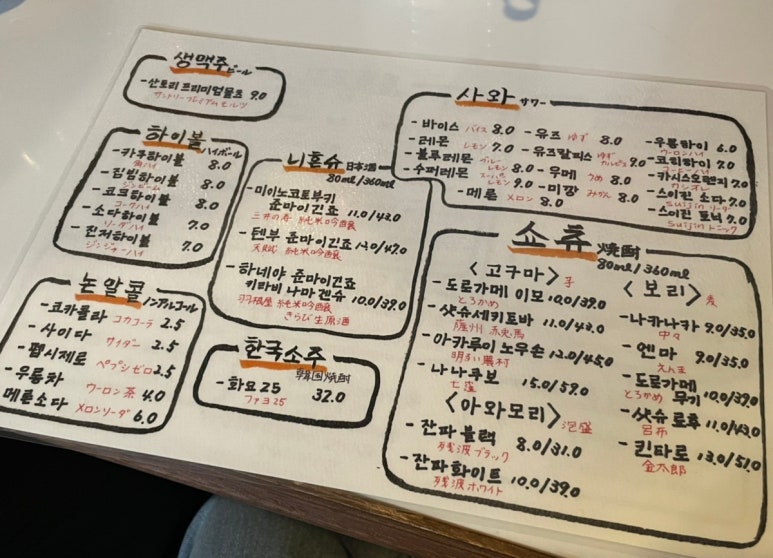 생맥주 ビール
- 산토리 프리미엄몰츠 9.0
サントリープレイアムモルツ
하이볼 ハイボール
- 카쿠하이볼 8.0
角ハイ
- 짐빔하이볼 8.0
ジンビーム
- 코크하이볼 8.0
コークハイ
- 소다하이볼 7.0
ソーダハイ
- 진저하이볼 7.0
ジンジャーハイ
논알콜 ノンアルコール
- 코카콜라 コカコーラ 2.5
- 사이다 サイダー 2.5
- 펩시제로 ペプシゼロ 2.5
- 우롱차 ウーロン茶 4.0
메론소다 メロンソーダ 6.0
니혼슈 日本酒
80ml/360ml
- 미이노코토부키
준마이긴죠 11.0/43.0
三井の寿 純米吟醸
- 텐부 쥰마이긴죠 12.0/47.0
天賦 純米吟醸
- 하네야 쥰마이긴죠
키라비 나마겐슈 10.0/39.0
羽根屋 純米吟醸
きらび生原酒
한국소주
韓国焼酎
- 화요25 32.0
ファヨ25
사와 サワー
- 바이스 バイス 8.0
- 레몬 レモン 7.0
- 블루레몬 ブルーレモン 8.0
- 수퍼레몬 スーパーレモン 9.0
- 메론 メロン 8.0
- 유즈 ゆず 8.0
- 유즈칼피스 ゆずカルピス 9.0
- 우메 うめ 8.0
- 미깡 みかん 8.0
- 우롱하이 6.0
ウーロンハイ
- 코히하이 7.0
コーヒーハイ
- 카시스오렌지 7.0
カシオレ
- 스이진 소다 7.0
Suijin ソーダ
- 스이진 토닉 7.0
Suijin トニック
쇼츄 焼酎
80ml/360ml
<고구마> 芋
- 도로가메 이모 10.0/39.0
とろかめ
- 삿슈세키토바 11.0/43.0
薩州 赤兎馬
- 아카루이 노우손 12.0/45.0
明るい農村
- 나나쿠보 15.0/59.0
七窪
<아와모리> 泡盛
- 잔파 블랙 8.0/31.0
残波ブラック
- 잔파 화이트 10.0/39.0
残波ホワイト
<보리> 麦
- 나카나카 9.0/35.0
中々
- 엔마 9.0/35.0
えんま
- 도로가메 무기 10.0/39.0
とろかめ
- 삿슈 로후 11.0/43.0
呂布
- 킨타로 13.0/51.0
金太郎